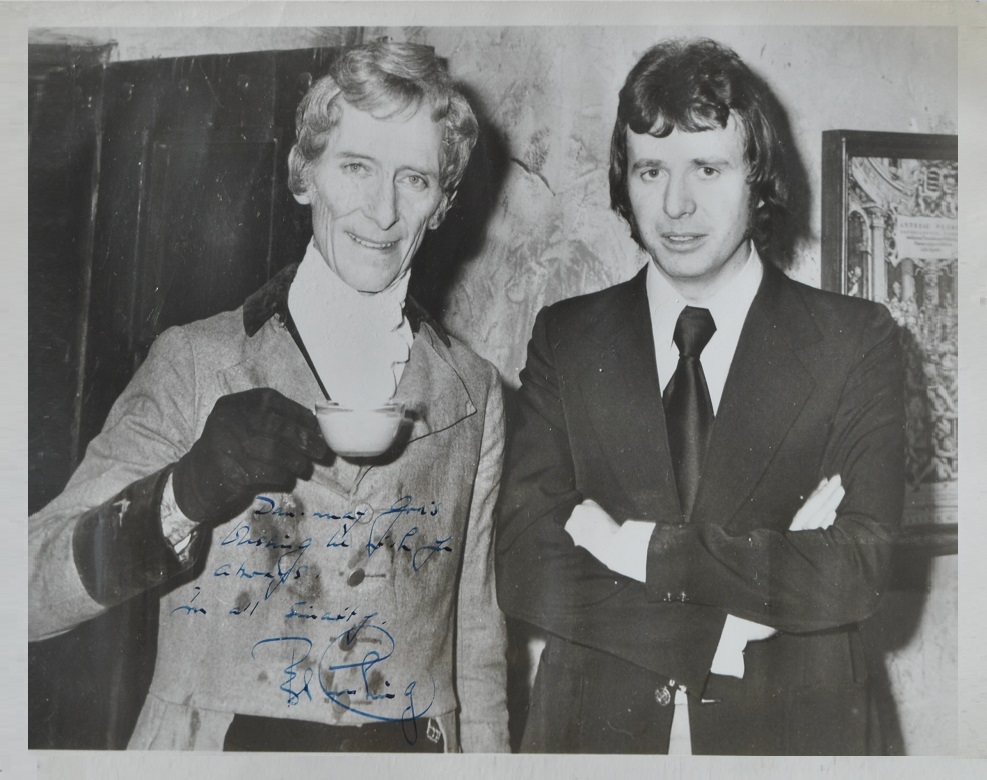 Dan. may God's
Blessing be with you
always
In all Sincerity.
Peter Cushing